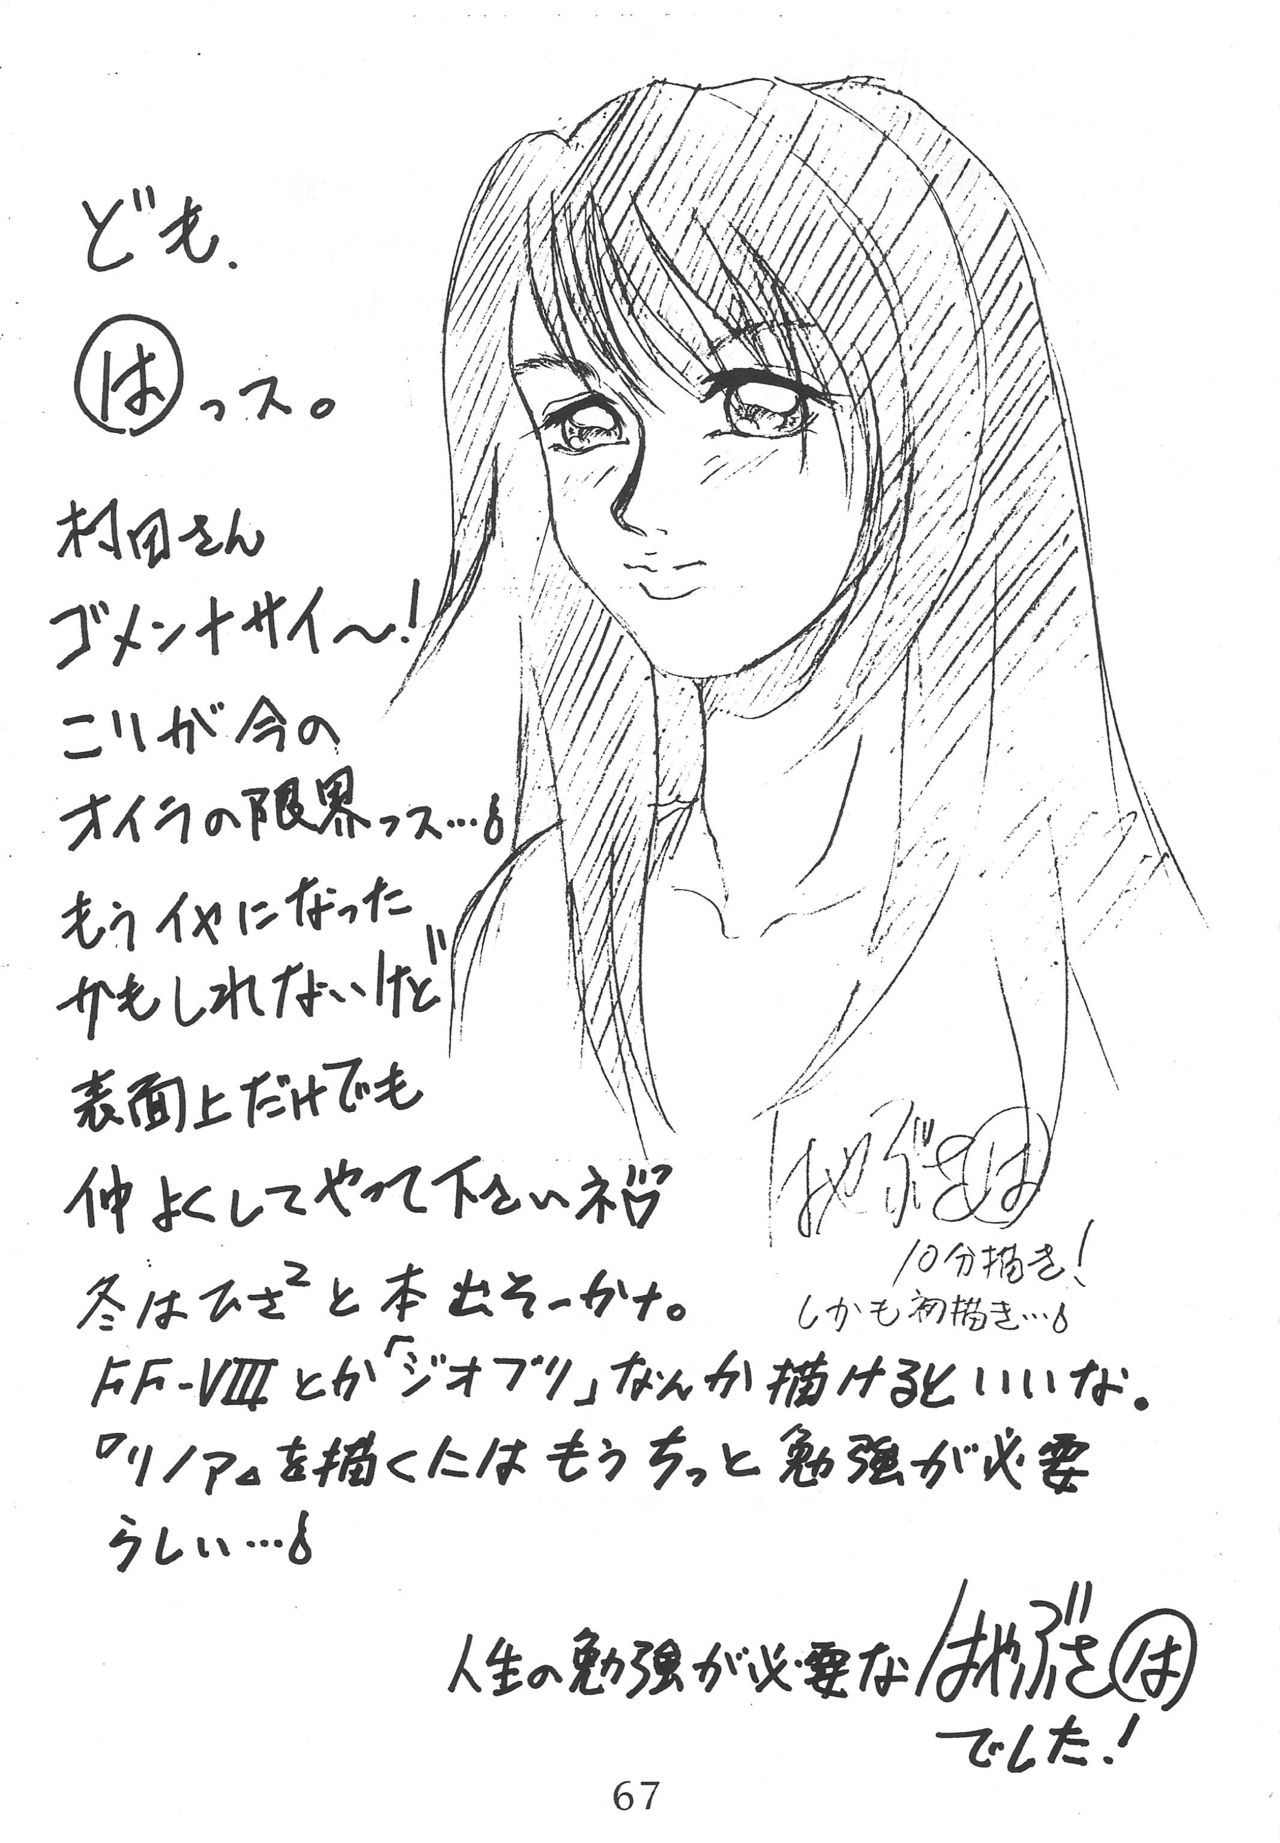 ども.
はっス。
村田さん
ゴメンナサイ〜!
こりが今の
オイラの限界っス…
もうイヤになった
かもしれないけど
表面上だけでも
仲よくしてやって下さいネ
冬はひさ²と本出そーかナ。
FF-VIIIとか「ジオブリ」なんか描けるといいな。
『リノア』を描くにはもうちっと勉強が必要
らしい…
はやぶさは
10分描き!
しかも初描き…
人生の勉強が必要なはやぶさは
でした!
67